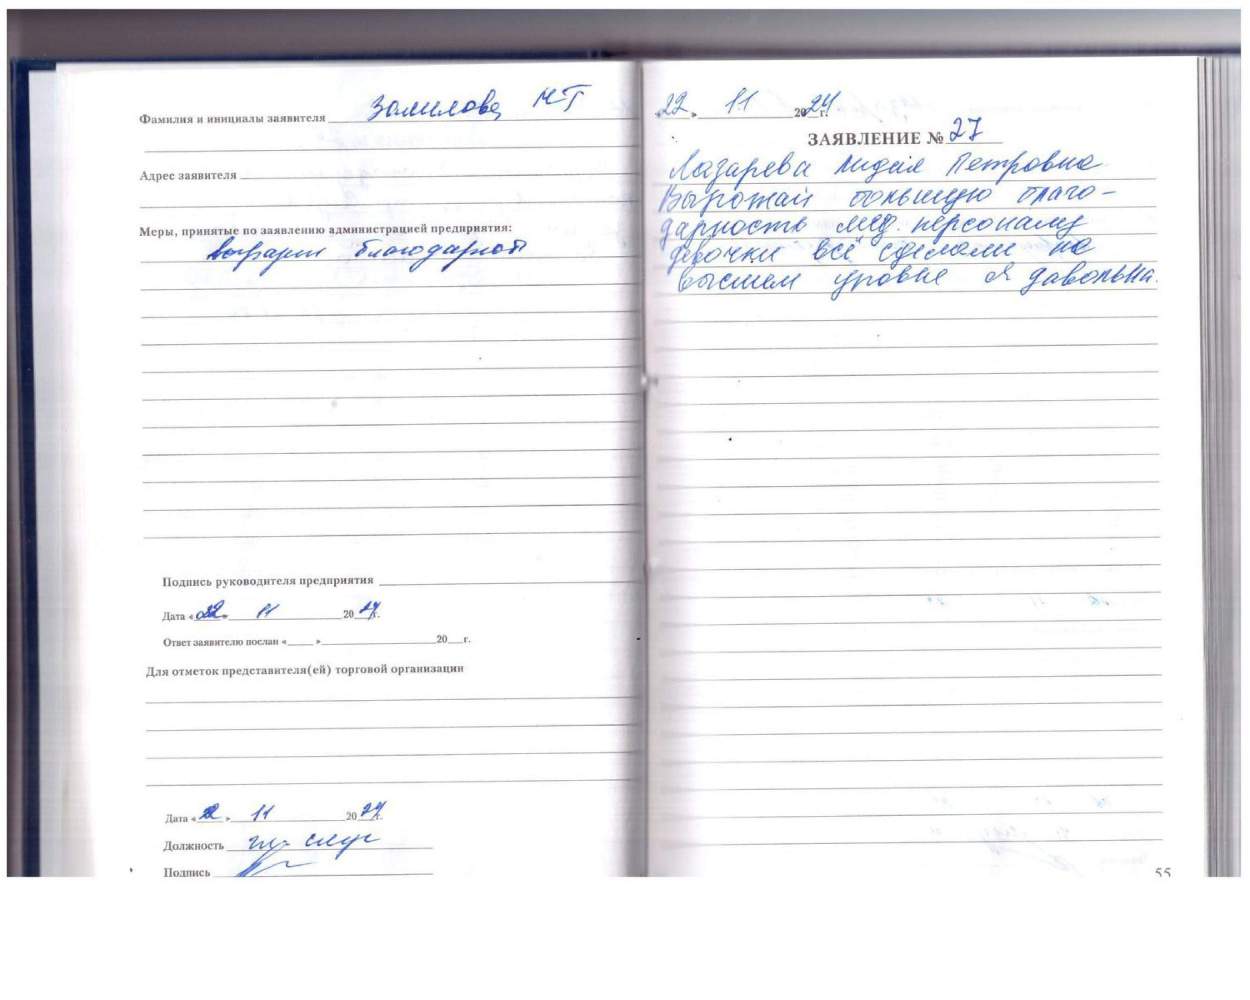 Фамилия и инициалы заявителя
Адрес заявителя
Меры, принятые по заявлению администрацией предприятия:
Подпись руководителя предприятия
Дата « 22 » 11 20 24 г.
Ответ заявителю послан « » 20 г.
Для отметок представителя(ей) торговой организации
Дата « 22 » 11 20 24 г.
Должность
Подпись
« 22 » 11 20 24 г.
ЗАЯВЛЕНИЕ № 27
Лазарева Лидия Петровна
Выражаю большую благо-
дарность мед. персоналу
девочки всё сделали на
высшем уровне я давольна.
55